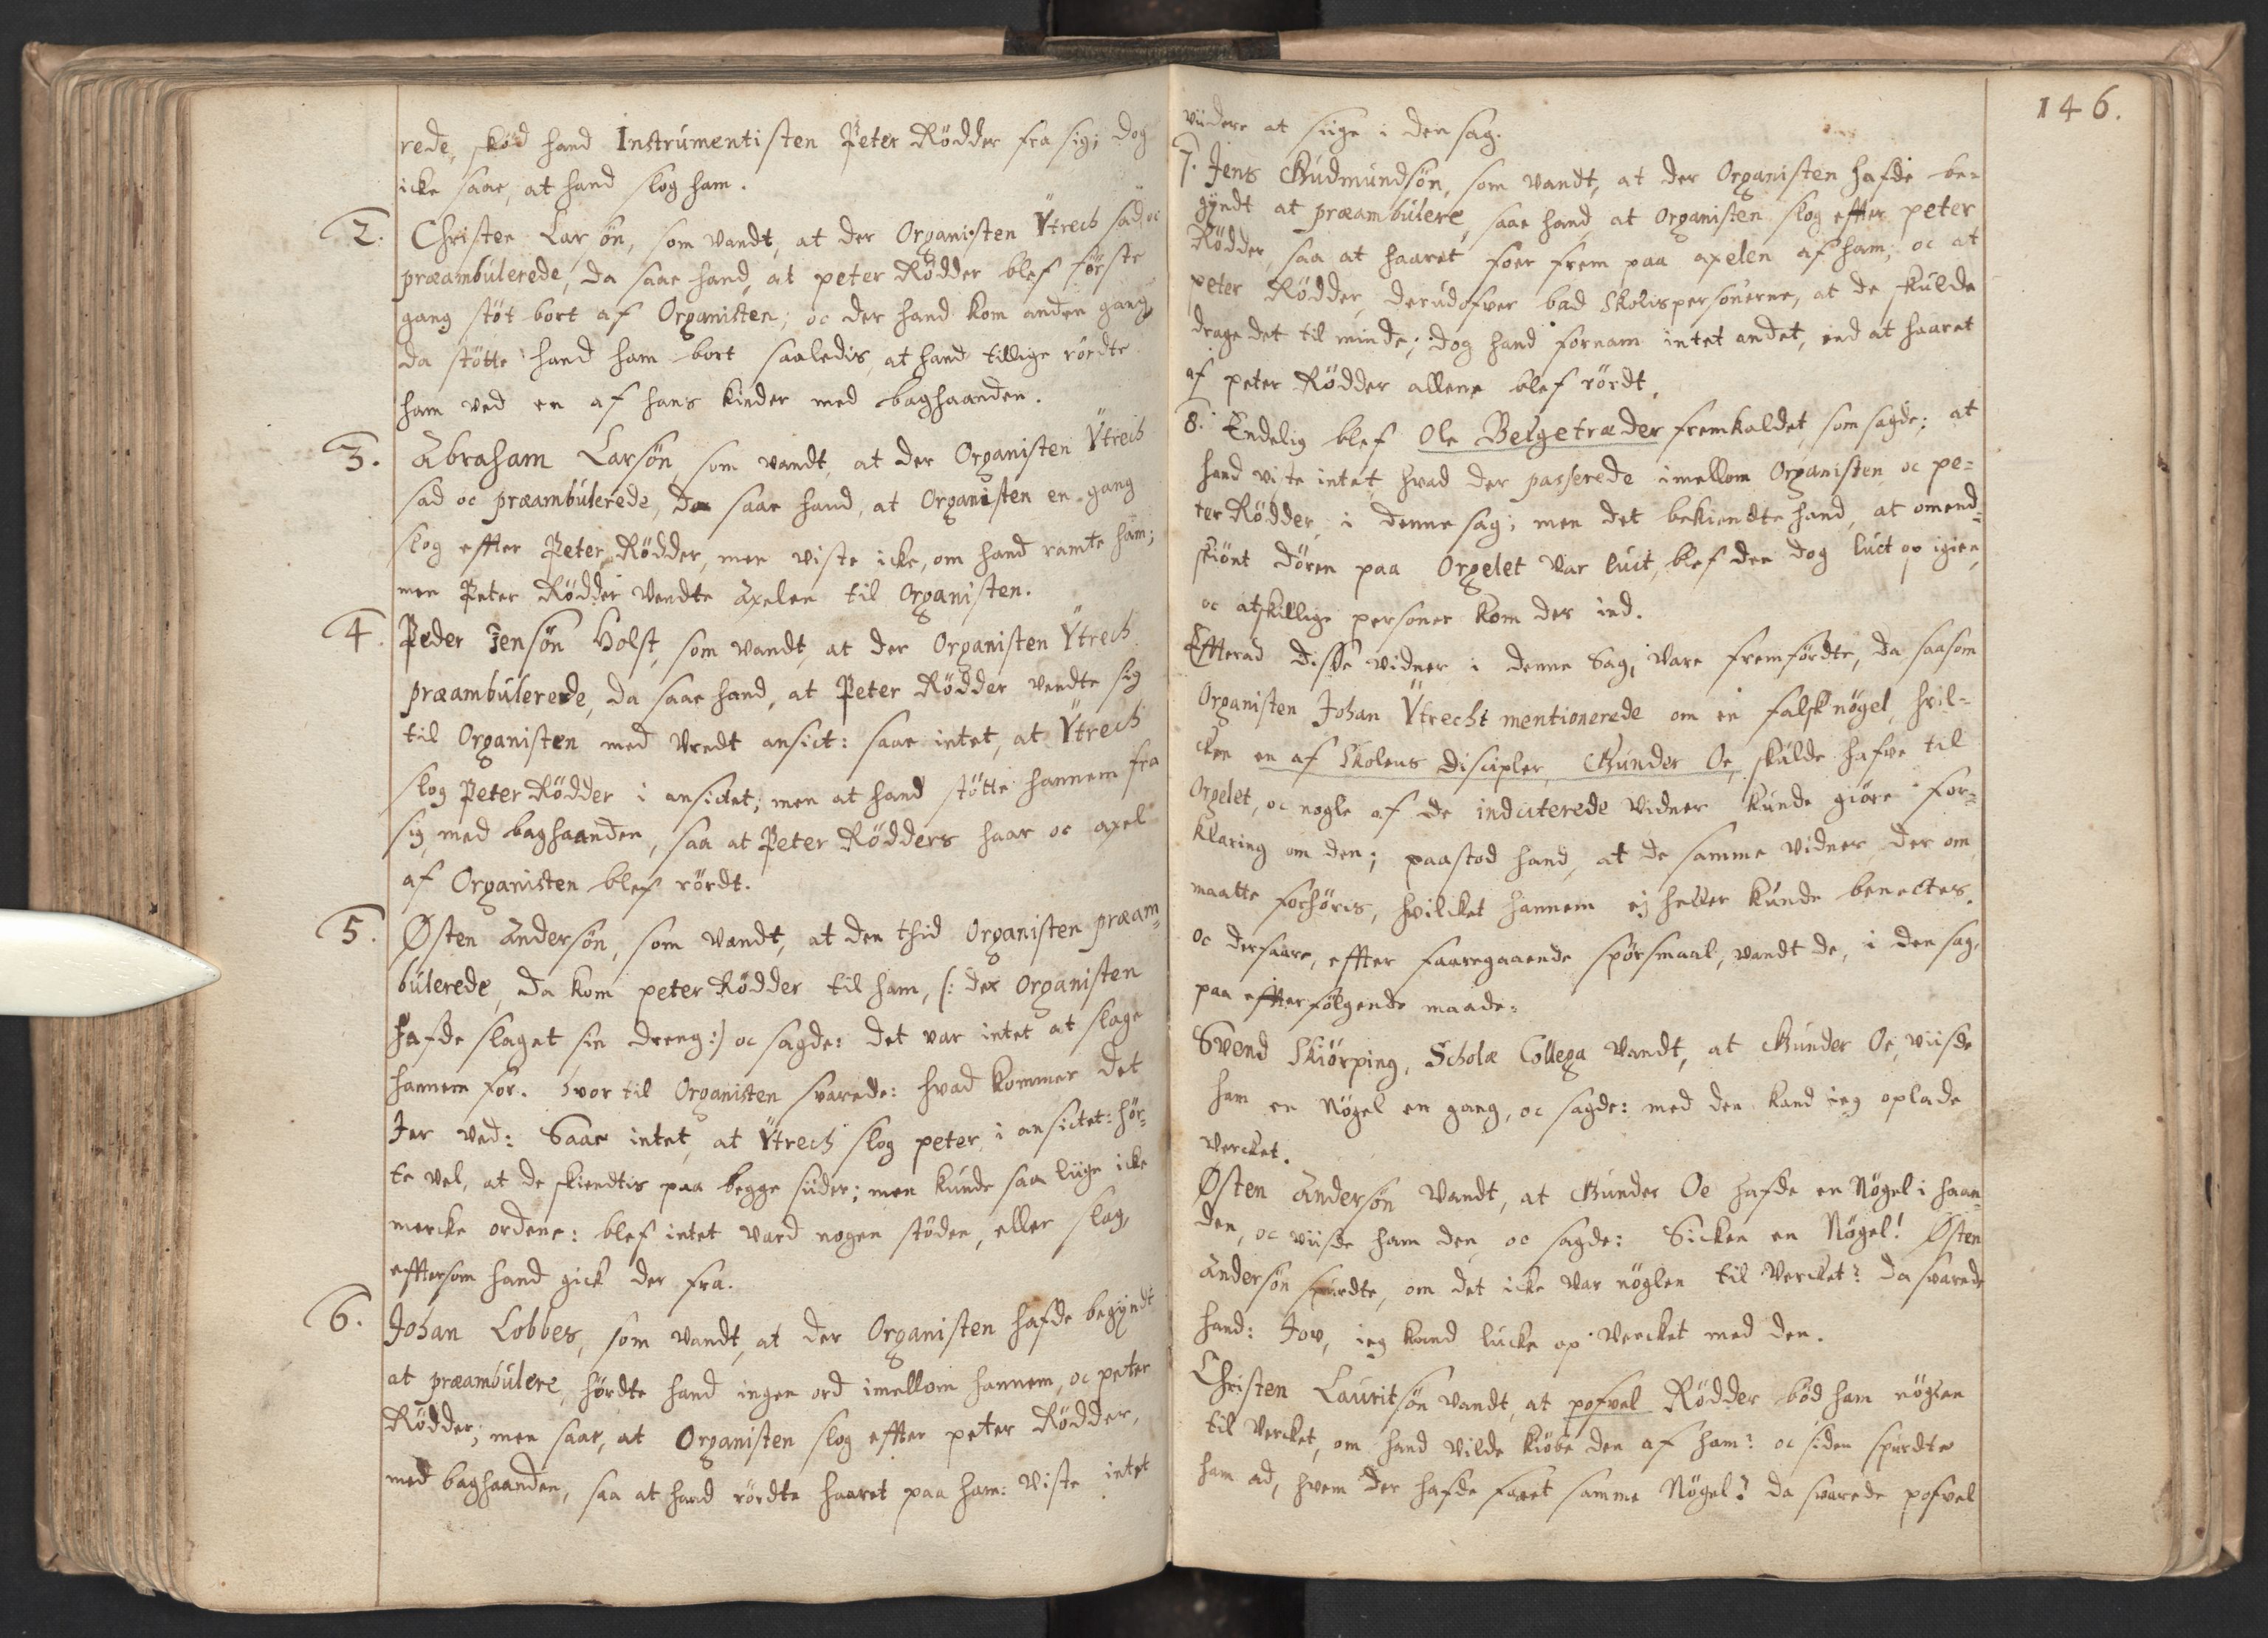 rede, skød hand Instrumentisten Peter Rødder fra sig; dog
icke saae, at hand slog ham.
2. Christen Larsøn, som vandt, at der Organisten Ÿtrech sad, oc
præambúlerede, da saae hand, at peter Rødder blef første
gang støt bort af Organisten; oc der hand kom anden gang,
da støtte hand ham bort saaledis, at hand tillige rørdte
ham ved en af hans kinder med baghaanden.
3. Abraham Larsøn, som vandt, at der Organisten Ÿtrech
sad oc præambúlerede, da saae hand, at Organisten en gang
slog effter Peter Rødder, men viste icke, om hand ramte ham;
men Peter Rødder vendte Axelen til Organisten.
4. Peder Jensøn Holst, som vandt, at der Organisten Ÿtrech
præambúlerede, da saae hand, at Peter Rødder vendte sig
til Organisten med vredt ansict: saae intet, at Ÿtrech
slog Peter Rødder i ansictet; men at hand støtte hannem fra
sig med baghaanden, saa at Peter Rødders haar oc axel
af Organisten blef rørdt.
5. Østen Andersøn, som vandt, at den thid Organisten præam-
búlerede, da kom peter Rødder til ham, (: der Organisten
hafde slaget sin dreng:) oc sagde: det var intet at slage
hannem for. hvor til Organisten svarede: hvad kommer det
Jer ved: Saae intet, at Ÿtrech slog peter i ansictet: hør-
te vel, at de skiendtis paa begge siider; men kunde saa liige icke
mercke ordene: blef intet vaed nogen støden, eller slag,
efftersom hand gick der fra.
6. Johan Lobbes, som vandt, at der Organisten hafde begyndt
at præambúlere, hørdte hand ingen ord imellom hannem, oc peter
Rødder; men saae, at Organisten slog effter peter Rødder,
med baghaanden, saa at hand rørdte haaret paa ham: viste intet
146.
viidere at siige i den sag.
7. Jens Gúdmúndsøn, som vandt, at der Organisten hafde be-
gyndt at præambúlere, saae hand, at Organisten slog effter peter
Rødder, saa at haaret foer frem paa axelen af ham; oc at
peter Rødder, derúdofver bad Skolispersonerne, at de skulde
drage det til minde; dog hand fornam intet andet, end at haaret
af peter Rødder allene blef rørdt.
8. Endelig blef Ole Belgetræder fremkaldet, som sagde; at
hand viste intet, hvad der passerede imellom Organisten oc pe-
ter Rødder, i denne sag; men det bekiendte hand, at omend-
skiønt døren paa Orgelet var luct, blef den dog luct op igien,
oc atskillige personer kom der ind.
Effterad disse vidner i denne Sag, vare fremførdte, da saasom
Organisten Johan Ÿtrecht mentionerede om en falsk nøgel, hvil-
cken en af Skolens discipler, Gúnder Oe, skúlde hafve til
Orgelet, oc nogle af de indciterede vidner kunde giøre for-
klaring om den; paastod hand, at de samme vidner der om
maatte forhøris, hvilcket hannem ej heller kunde benectes.
oc dersaare, effter faaregaaende spørsmaal, vandt de, i den sag,
paa effterfølgende maade:
Svend Skiørping, Scholæ Collega vandt, at Gúnder Oe, viisde
ham en Nøgel en gang, oc sagde: med den kand ieg oplade
vercket.
Østen Andersøn vandt, at Gúnder Oe hafde en Nøgel i haan-
den, oc viisde ham den, oc sagde: Sicken en Nøgel! Østen
Andersøn spurdte, om det icke var nøglen til Vercket? da svarede
hand: Jov, ieg kand lucke op vercket med den.
Christen Lauritsøn vandt, at pofvel Rødder bød ham nøglen
til vercket, om hand vilde kiøbe den af ham? oc siden spurdte
ham ad, hvem der hafde faaet samme Nøgel? da svarede pofvel